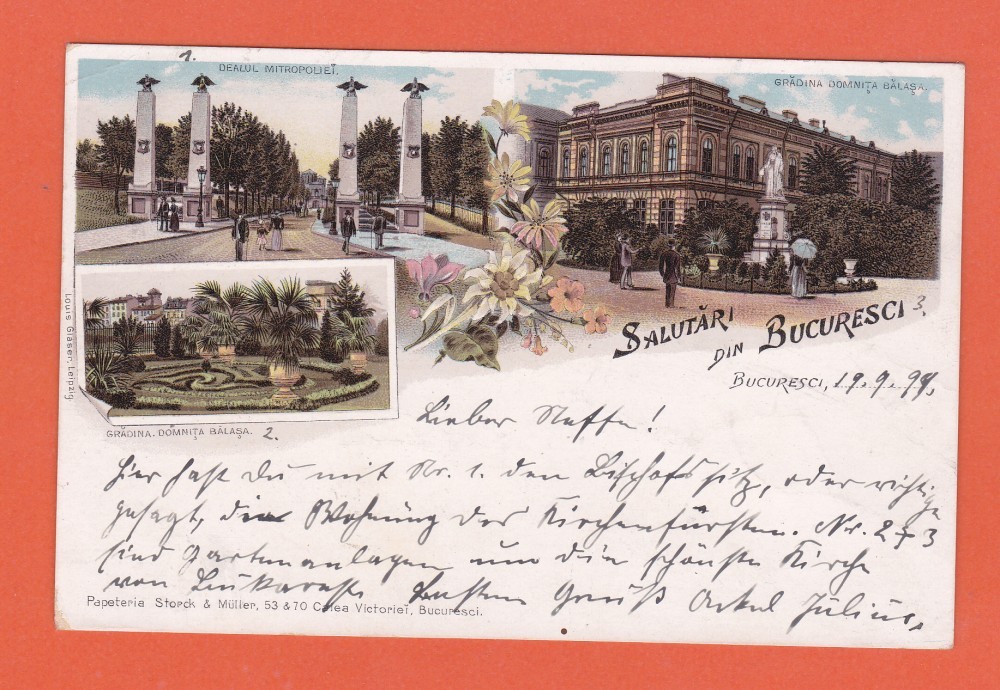 1.
DEALUL MITROPOLIEĬ.
GRĂDINA DOMNIȚA BĂLAȘA.
Louis Glaser, Leipzig
SALUTĂRI
DIN BUCURESCI 3.
BUCURESCI, 19.9.99.
GRĂDINA. DOMNIȚA BĂLAȘA. 2.
Lieber Neffe!
Hier hast Du mit Nr. 1. den Bischofssitz, oder richtig
gesagt, die Wohnung des Kirchenfürsten. Nr. 2 & 3
sind Gartenanlagen um die schönste Kirche
von Bukarest. Besten Gruß Onkel Julius.
Papeteria Storck & Müller, 53 & 70 Calea Victorieĭ, Bucuresci.